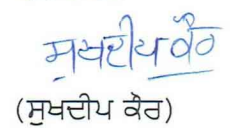 ਸੁਖਦੀਪ ਕੌਰ
(ਸੁਖਦੀਪ ਕੌਰ)